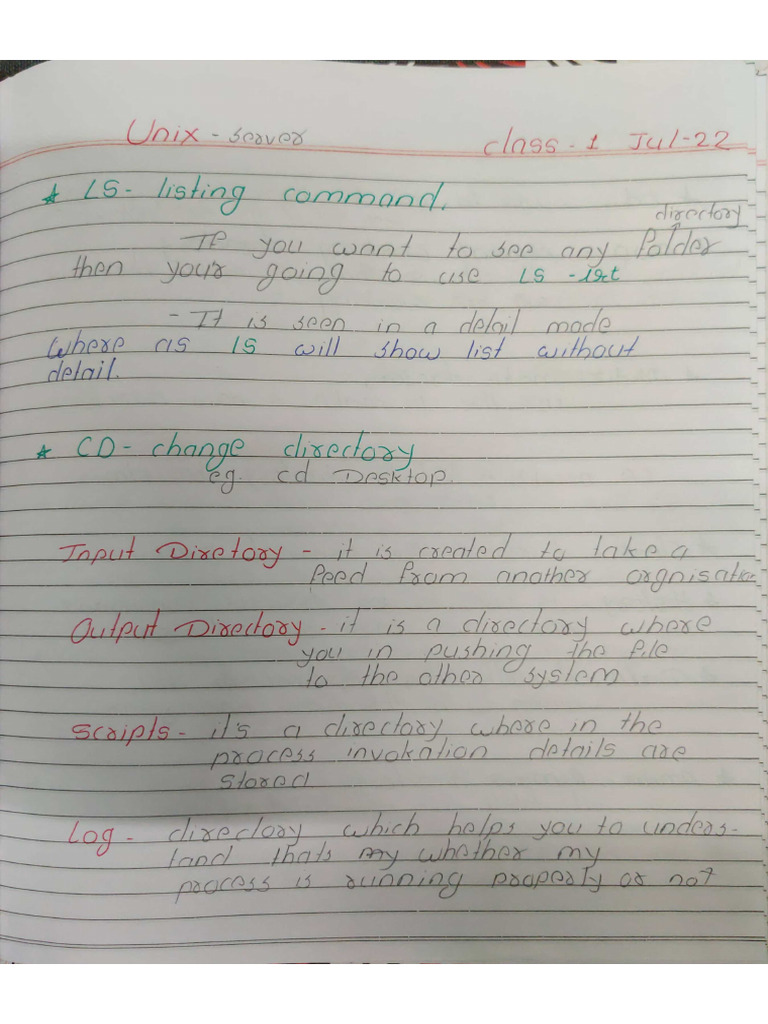 Unix - server class - 1 Jul-22
* LS - listing command.
directory
If you want to see any folder
then your going to use LS -lrt
- It is seen in a detail mode
where as LS will show list without
detail.
* CD - change directory
eg. cd Desktop.
Input Diretory - it is created to take a
feed from another orgnisation
Output Directory - it is a directory where
you in pushing the file
to the other system
Scripts - it's a directory where in the
process invokation details are
stored
Log - directory which helps you to unders-
tand thats my whether my
process is running properly or not